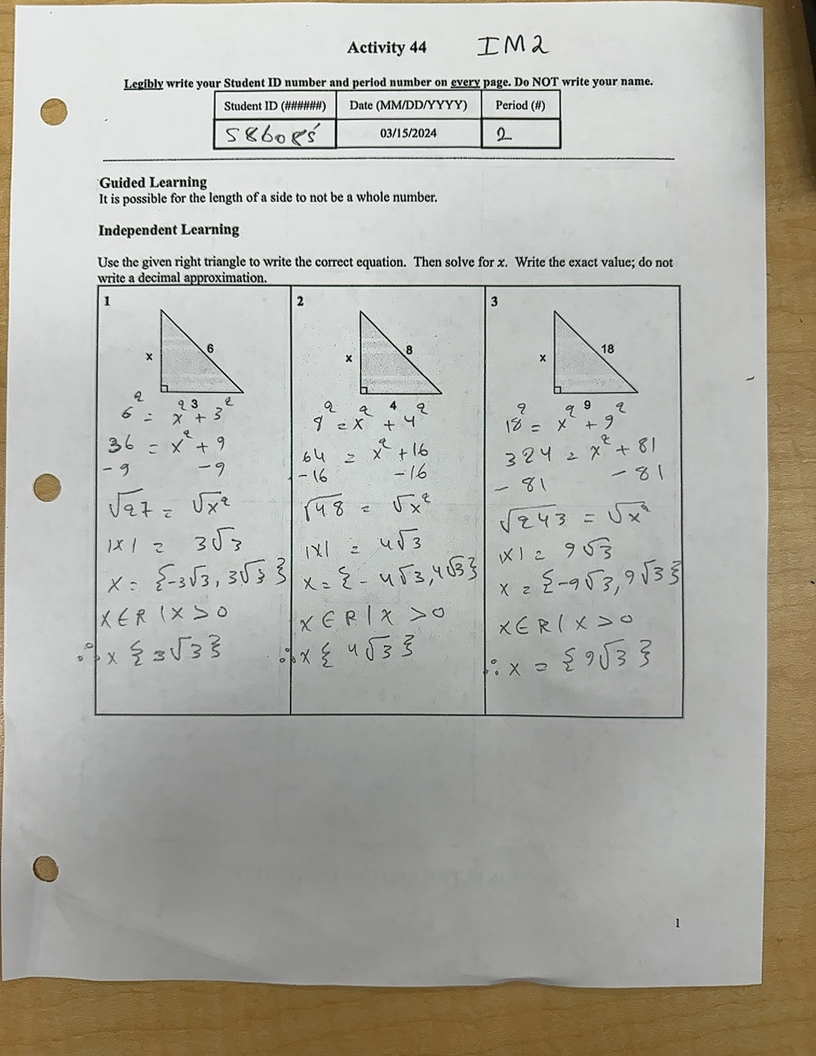 Activity 44 IM2
Legibly write your Student ID number and period number on every page. Do NOT write your name.
Student ID (######) Date (MM/DD/YYYY) Period (#)
586085 03/15/2024 2
Guided Learning
It is possible for the length of a side to not be a whole number.
Independent Learning
Use the given right triangle to write the correct equation. Then solve for x. Write the exact value; do not
write a decimal approximation.
1
x
6
3
6² = x² + 3²
36 = x² + 9
-9 -9
√27 = √x²
|x| = 3√3
x = {-3√3, 3√3}
x ∈ R | x > 0
∴ x {3√3}
2
x
8
4
8² = x² + 4²
64 = x² + 16
-16 -16
√48 = √x²
|x| = 4√3
x = {-4√3, 4√3}
x ∈ R | x > 0
∴ x {4√3}
3
x
18
9
18² = x² + 9²
324 = x² + 81
-81 -81
√243 = √x²
|x| = 9√3
x = {-9√3, 9√3}
x ∈ R | x > 0
∴ x = {9√3}
1